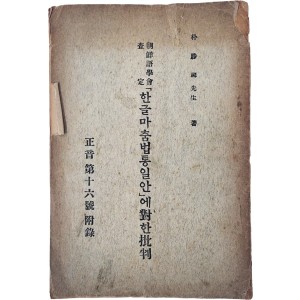 朴勝彬先生 著
朝鮮語學會
查定
「한글마춤법통일안」에對한批判
正音 第十六號 附錄